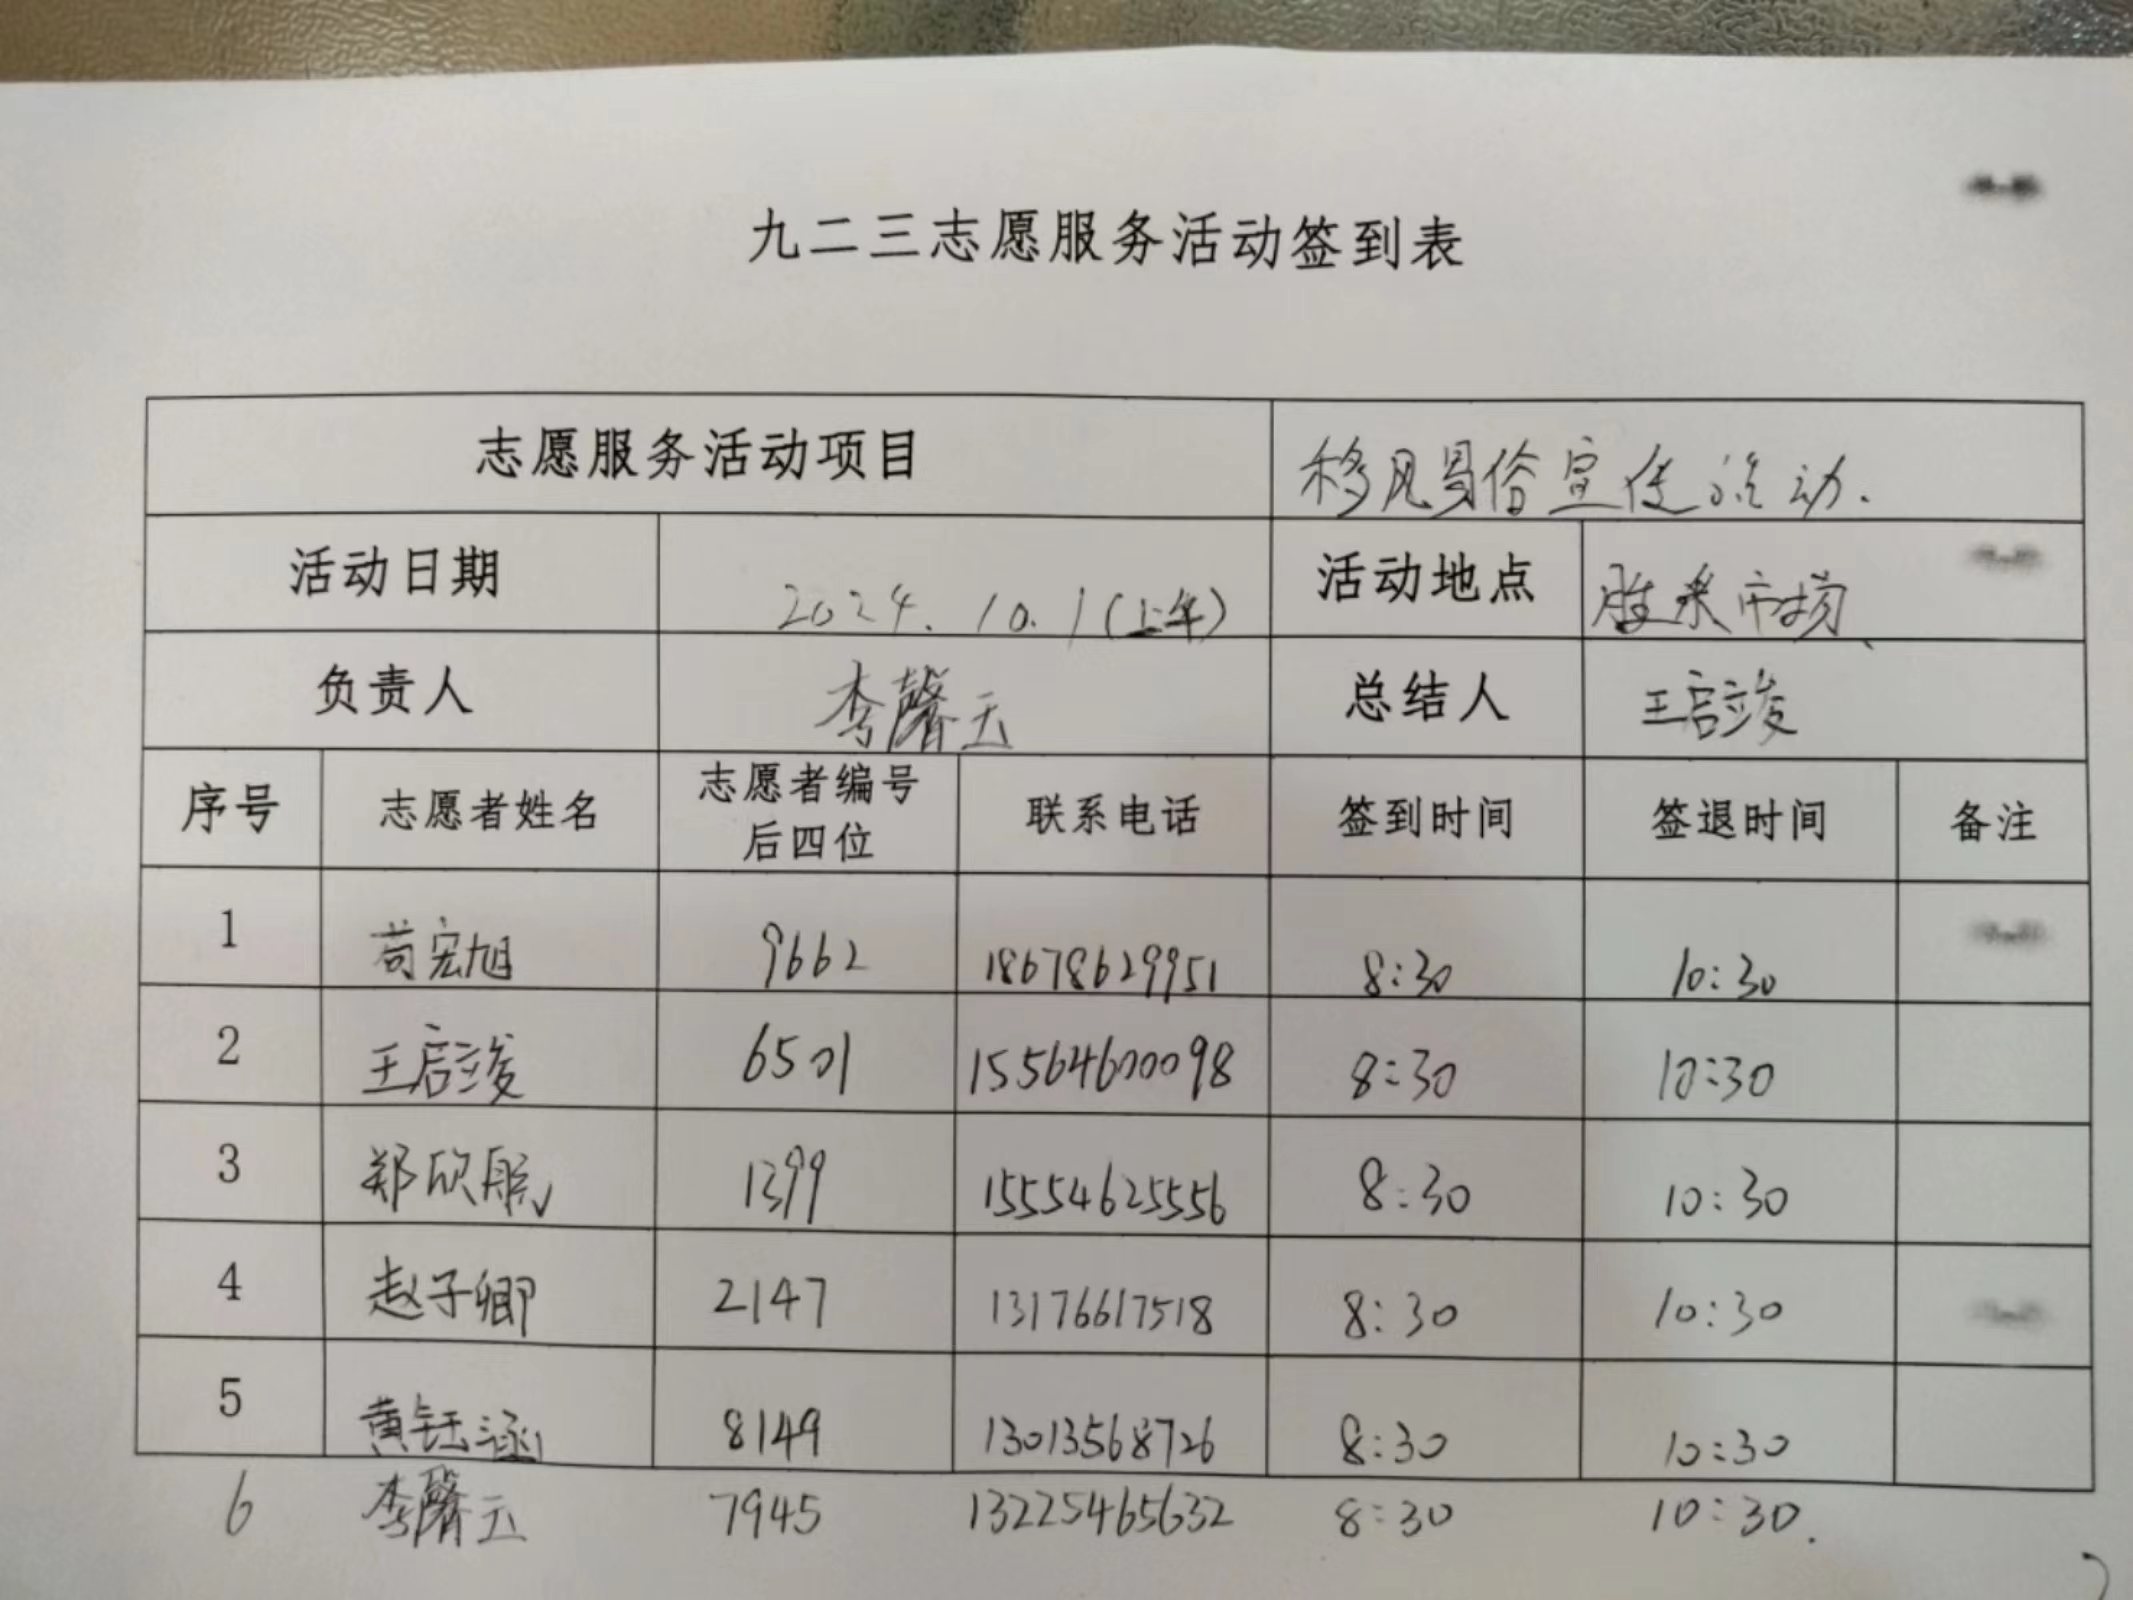 九二三志愿服务活动签到表
志愿服务活动项目 移风易俗宣传活动.
活动日期 2024.10.1(上午) 活动地点 胜采市场
负责人 李馨云 总结人 王启竣
序号 志愿者姓名 志愿者编号后四位 联系电话 签到时间 签退时间 备注
1 苟宏旭 9662 18678629951 8:30 10:30
2 王启竣 6501 15564600098 8:30 10:30
3 郑欣 1399 15554625556 8:30 10:30
4 赵子卿 2147 13176617518 8:30 10:30
5 黄钰涵 8149 13013568726 8:30 10:30
6 李馨云 7945 13225465632 8:30 10:30.